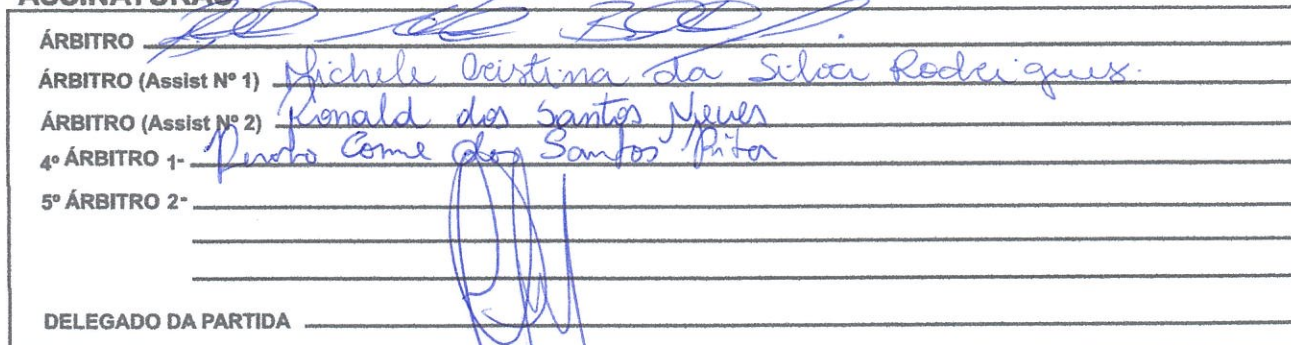 ASSINATURAS
ÁRBITRO
ÁRBITRO (Assist Nº 1) Michele Cristina da Silva Rodrigues.
ÁRBITRO (Assist Nº 2) Ronald dos Santos Neves
4º ÁRBITRO 1- Come dos Santos
5º ÁRBITRO 2-
DELEGADO DA PARTIDA